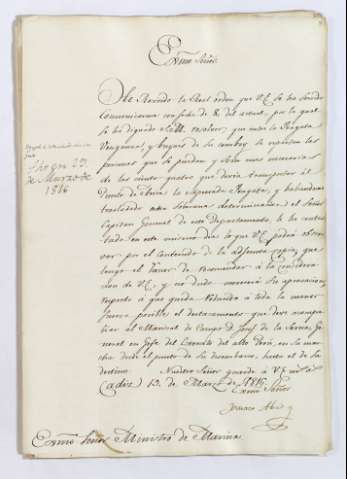 Exmo Señor
He Recivido la Real orden que V.E. se ha servido
comunicarme con fecha de 8 del actual, por la qual
se ha dignado S.M. resolver, que entre la Fragata
Venganza, y buques de su comboy se repartan las
personas que se puedan y sean mas necesarias
de las veinte quatro que devia transportar al
Puerto de la expresada Fragata, y habiendose
trasladado esta soberana determinacion al Señor
Capitan General de este Departamento, le ha contes
tado en este mismo dia lo que V.E. podrá obser
var por el contenido de la adjunta copia, que
tengo el honor de acompañar á la considera
cion de V.E. y no dudo merecerá su aprovacion
respecto á que queda reducido á toda la menor
fuerza posible el destacamento que deve acompa
ñar al Mariscal de Campo D. José de la Serna, Ge
neral en Gefe del Exercito del alto Perú, en su mar
cha desde el punto de su desembarco, hasta el de su
destino. Nuestro Señor guarde á V.E. m. a.
Cadiz 15 de Marzo de 1816.
Exmo Señor
Exmo Señor Ministro de Marina.
de Marzo de
1816